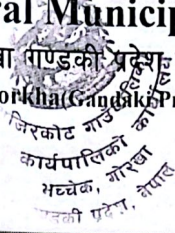 ral Municip
गण्डकी प्रदेश
orkha(Gandaki Pr
जिरकोट गाउँपालिका
कार्यपालिकाको कार्यालय
भच्चेक, गोरखा
प्रदेश, नेपाल